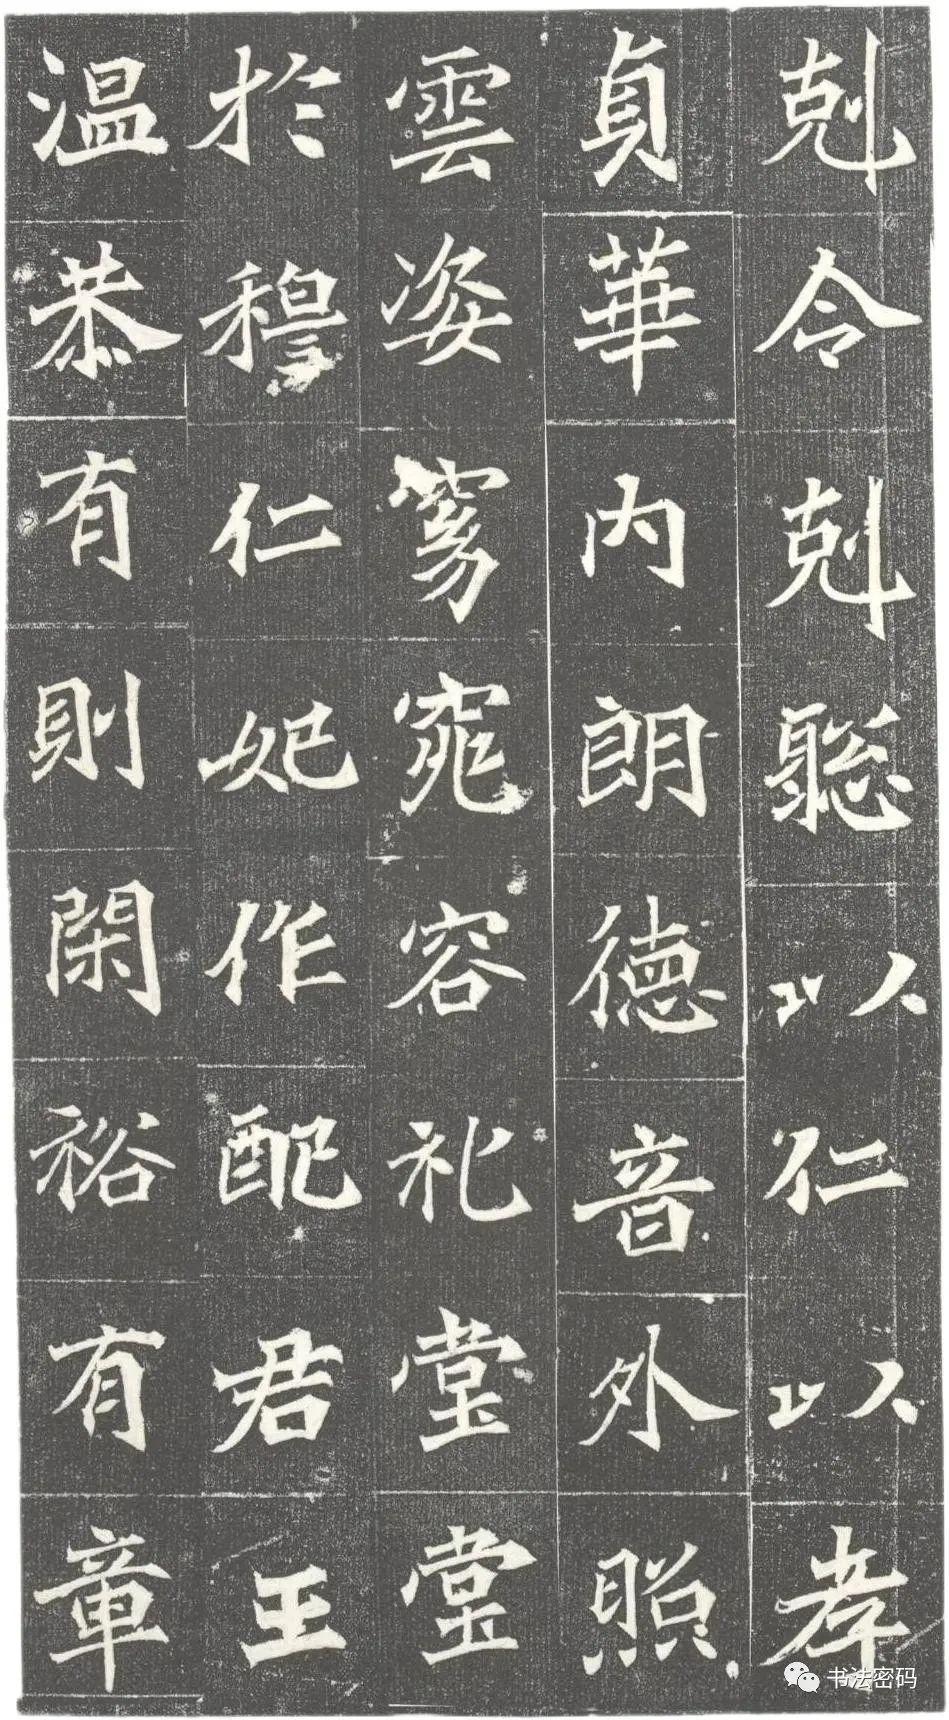 剋令剋聡以仁以孝
貞華内朗徳音外照
雲姿窈窕容礼堂堂
於穆仁妃作配君王
温恭有則閑裕有章
书法密码